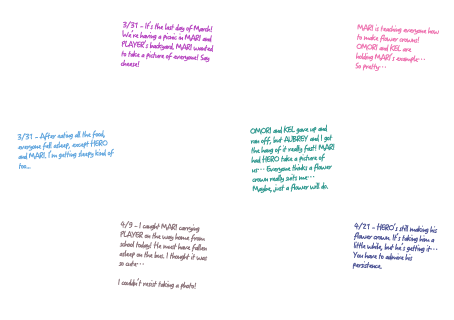 3/31 - It's the last day of March!
We're having a picnic in MARI and
PLAYER's backyard. MARI wanted
to take a picture of everyone! Say
cheese!
MARI is teaching everyone how
to make flower crowns!
OMORI and KEL are
holding MARI's example...
So pretty...
3/31 - After eating all the food,
everyone fell asleep, except HERO
and MARI. I'm getting sleepy kind of
too...
OMORI and KEL gave up and
ran off, but AUBREY and I got
the hang of it really fast! MARI
had HERO take a picture of
us... Everyone thinks a flower
crown really suits me...
Maybe, just a flower will do.
4/9 - I caught MARI carrying
PLAYER on the way home from
school today! He must have fallen
asleep on the bus. I thought it was
so cute...
I couldn't resist taking a photo!
4/21 - HERO's still making his
flower crown. It's taking him a
little while, but he's getting it...
You have to admire his
persistence.